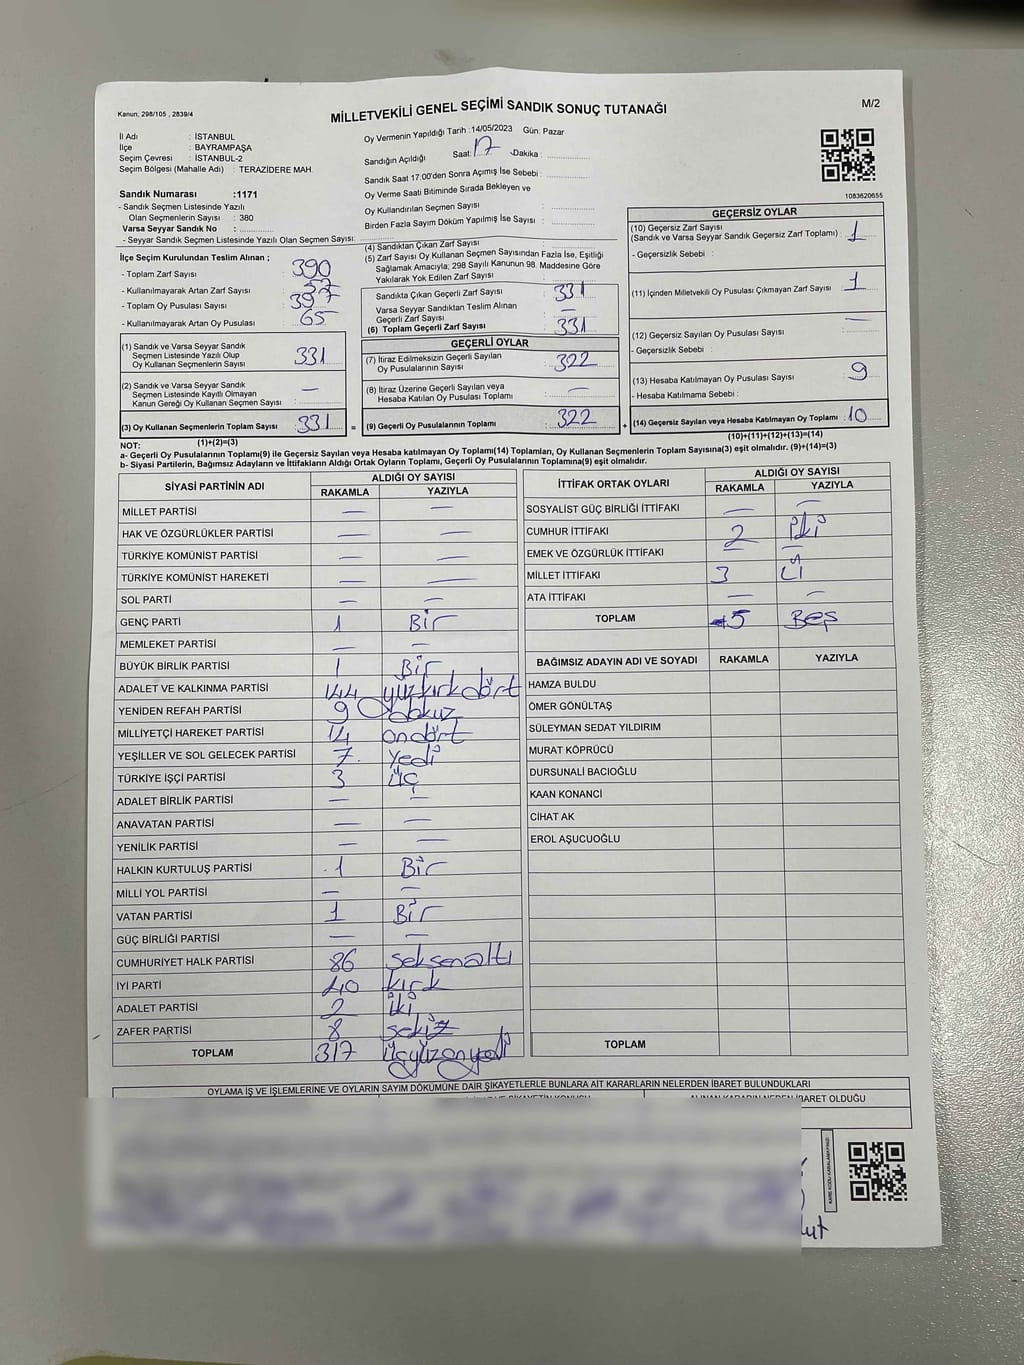 Kanun; 298/105 , 2839/4
MİLLETVEKİLİ GENEL SEÇİMİ SANDIK SONUÇ TUTANAĞI
M/2
İl Adı : İSTANBUL
İlçe : BAYRAMPAŞA
Seçim Çevresi : İSTANBUL-2
Seçim Bölgesi (Mahalle Adı) : TERAZİDERE MAH.
Sandık Numarası :1171
- Sandık Seçmen Listesinde Yazılı
Olan Seçmenlerin Sayısı : 380
Varsa Seyyar Sandık No :
- Seyyar Sandık Seçmen Listesinde Yazılı Olan Seçmen Sayısı:
Oy Vermenin Yapıldığı Tarih :14/05/2023 Gün: Pazar
Sandığın Açıldığı Saat: 17 Dakika :
Sandık Saat 17:00'den Sonra Açımış İse Sebebi :
Oy Verme Saati Bitiminde Sırada Bekleyen ve
Oy Kullandırılan Seçmen Sayısı :
Birden Fazla Sayım Döküm Yapılmış İse Sayısı :
1083620655
İlçe Seçim Kurulundan Teslim Alınan ;
- Toplam Zarf Sayısı : 390
- Kullanılmayarak Artan Zarf Sayısı :
- Toplam Oy Pusulası Sayısı : 397
- Kullanılmayarak Artan Oy Pusulası : 65
(1) Sandık ve Varsa Seyyar Sandık
Seçmen Listesinde Yazılı Olup
Oy Kullanan Seçmenlerin Sayısı : 331
(2) Sandık ve Varsa Seyyar Sandık
Seçmen Listesinde Kayıtlı Olmayan
Kanun Gereği Oy Kullanan Seçmen Sayısı : —
(3) Oy Kullanan Seçmenlerin Toplam Sayısı : 331 =
(1)+(2)=(3)
(4) Sandıktan Çıkan Zarf Sayısı :
(5) Zarf Sayısı Oy Kullanan Seçmen Sayısından Fazla İse, Eşitliği
Sağlamak Amacıyla; 298 Sayılı Kanunun 98. Maddesine Göre
Yakılarak Yok Edilen Zarf Sayısı :
Sandıkta Çıkan Geçerli Zarf Sayısı : 331
Varsa Seyyar Sandıktan Teslim Alınan
Geçerli Zarf Sayısı : —
(6) Toplam Geçerli Zarf Sayısı : 331
GEÇERLİ OYLAR
(7) İtiraz Edilmeksizin Geçerli Sayılan
Oy Pusulalarının Sayısı : 322
(8) İtiraz Üzerine Geçerli Sayılan veya
Hesaba Katılan Oy Pusulası Toplamı : —
(9) Geçerli Oy Pusulalarının Toplamı : 322 +
GEÇERSİZ OYLAR
(10) Geçersiz Zarf Sayısı
(Sandık ve Varsa Seyyar Sandık Geçersiz Zarf Toplamı) : 1
- Geçersizlik Sebebi :
(11) İçinden Milletvekili Oy Pusulası Çıkmayan Zarf Sayısı : 1
(12) Geçersiz Sayılan Oy Pusulası Sayısı : —
- Geçersizlik Sebebi :
(13) Hesaba Katılmayan Oy Pusulası Sayısı : 9
- Hesaba Katılmama Sebebi :
(14) Geçersiz Sayılan veya Hesaba Katılmayan Oy Toplamı : 10
(10)+(11)+(12)+(13)=(14)
NOT:
a- Geçerli Oy Pusulasının Toplamı(9) ile Geçersiz Sayılan veya Hesaba katılmayan Oy Toplamı(14) Toplamları, Oy Kullanan Seçmenlerin Toplam Sayısına(3) eşit olmalıdır. (9)+(14)=(3)
b- Siyasi Partilerin, Bağımsız Adayların ve İttifakların Aldığı Ortak Oyların Toplamı, Geçerli Oy Pusulasının Toplamına(9) eşit olmalıdır.
SİYASİ PARTİNİN ADI ALDIĞI OY SAYISI
RAKAMLA YAZIYLA
MİLLET PARTİSİ — —
HAK VE ÖZGÜRLÜKLER PARTİSİ — —
TÜRKİYE KOMÜNİST PARTİSİ — —
TÜRKİYE KOMÜNİST HAREKETİ — —
SOL PARTİ — —
GENÇ PARTİ 1 Bir
MEMLEKET PARTİSİ — —
BÜYÜK BİRLİK PARTİSİ 1 Bir
ADALET VE KALKINMA PARTİSİ 144 yüzkırkdört
YENİDEN REFAH PARTİSİ 9 dokuz
MİLLİYETÇİ HAREKET PARTİSİ 14 ondört
YEŞİLLER VE SOL GELECEK PARTİSİ 7 Yedi
TÜRKİYE İŞÇİ PARTİSİ 3 üç
ADALET BİRLİK PARTİSİ — —
ANAVATAN PARTİSİ — —
YENİLİK PARTİSİ — —
HALKIN KURTULUŞ PARTİSİ 1 Bir
MİLLİ YOL PARTİSİ — —
VATAN PARTİSİ 1 Bir
GÜÇ BİRLİĞİ PARTİSİ — —
CUMHURİYET HALK PARTİSİ 86 seksenaltı
İYİ PARTİ 40 kırk
ADALET PARTİSİ 2 iki
ZAFER PARTİSİ 8 sekiz
TOPLAM 317 üçyüzonyedi
İTTİFAK ORTAK OYLARI ALDIĞI OY SAYISI
RAKAMLA YAZIYLA
SOSYALİST GÜÇ BİRLİĞİ İTTİFAKI — —
CUMHUR İTTİFAKI 2 iki
EMEK VE ÖZGÜRLÜK İTTİFAKI — —
MİLLET İTTİFAKI 3
ATA İTTİFAKI — —
TOPLAM 5 Beş
BAĞIMSIZ ADAYIN ADI VE SOYADI RAKAMLA YAZIYLA
HAMZA BULDU
ÖMER GÖNÜLTAŞ
SÜLEYMAN SEDAT YILDIRIM
MURAT KÖPRÜCÜ
DURSUNALİ BACIOĞLU
KAAN KONANCİ
CİHAT AK
EROL AŞUCUOĞLU
TOPLAM
OYLAMA İŞ VE İŞLEMLERİNE VE OYLARIN SAYIM DÖKÜMÜNE DAİR ŞİKAYETLERLE BUNLARA AİT KARARLARIN NELERDEN İBARET BULUNDUKLARI